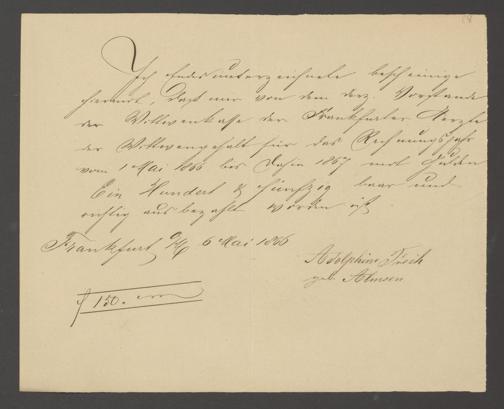 Ich Endesunterzeichnete bescheinige
hiermit, daß mir von dem derz. Vorstande
der Wittwenkasse der Frankfurter Aerzte
der Wittwengehalt für das Rechnungsjahr
vom 1 Mai 1866 bis dahin 1867 mit Gulden
Ein Hundert & fünfzig baar und
richtig ausbezahlt worden ist.
Frankfurt a/M 6 Mai 1866
Adolphine
geb.
f 150.